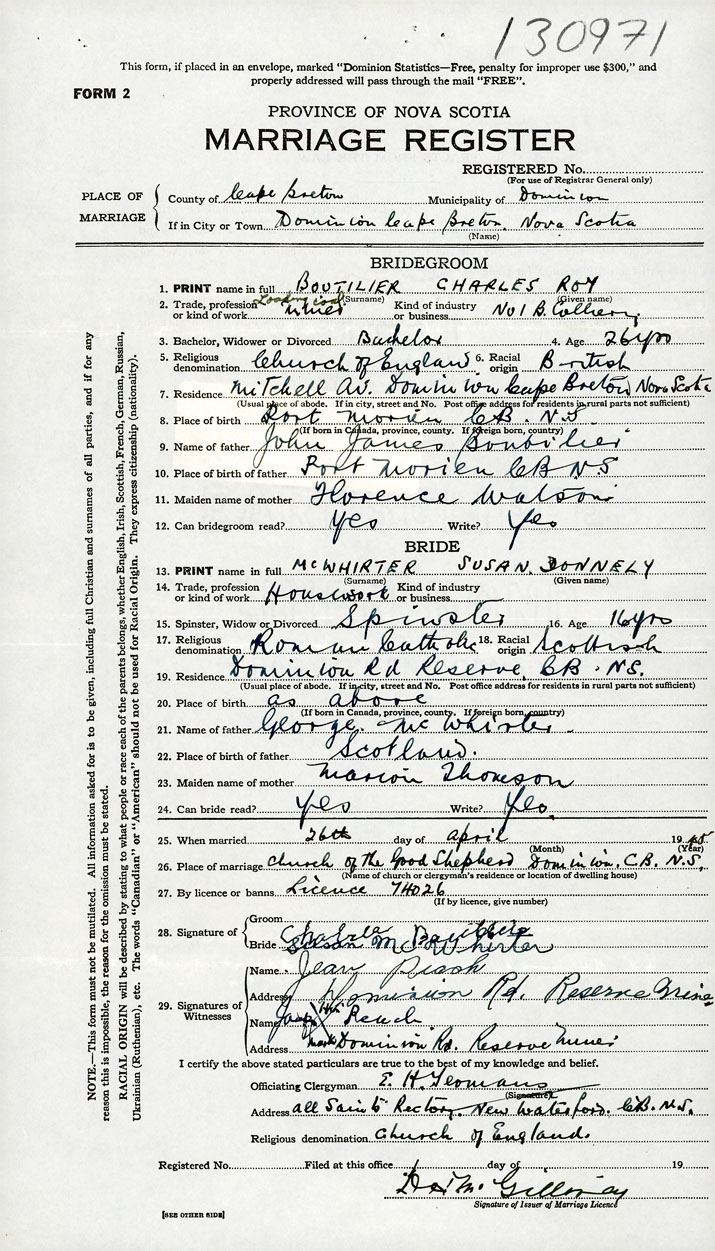 130971
This form, if placed in an envelope, marked "Dominion Statistics—Free, penalty for improper use $300," and
properly addressed will pass through the mail "FREE".
FORM 2
PROVINCE OF NOVA SCOTIA
MARRIAGE REGISTER
REGISTERED No.
(For use of Registrar General only)
PLACE OF MARRIAGE
County of Cape Breton Municipality of Dominion
If in City or Town Dominion Cape Breton, Nova Scotia
(Name)
BRIDEGROOM
1. PRINT name in full BOUTILIER CHARLES ROY
(Surname) (Given name)
2. Trade, profession or kind of work Loading coal miner Kind of industry or business No 1 B. Colliery
3. Bachelor, Widower or Divorced Bachelor 4. Age 26 yrs
5. Religious denomination Church of England 6. Racial origin British
7. Residence Mitchell Av. Dominion Cape Breton, Nova Scotia
(Usual place of abode. If in city, street and No. Post office address for residents in rural parts not sufficient)
8. Place of birth Port Morien C.B. N.S.
(If born in Canada, province, county. If foreign born, country)
9. Name of father John James Boutilier
10. Place of birth of father Port Morien CB N.S
11. Maiden name of mother Florence Watson
12. Can bridegroom read? Yes Write? Yes
BRIDE
13. PRINT name in full McWHIRTER SUSAN. DONNELY
(Surname) (Given name)
14. Trade, profession or kind of work Housework Kind of industry or business
15. Spinster, Widow or Divorced Spinster 16. Age 16 yrs
17. Religious denomination Roman Catholic 18. Racial origin Scottish
19. Residence Dominion Rd Reserve, CB. N.S.
(Usual place of abode. If in city, street and No. Post office address for residents in rural parts not sufficient)
20. Place of birth as above
(If born in Canada, province, county. If foreign born, country)
21. Name of father George. McWhirter
22. Place of birth of father Scotland.
23. Maiden name of mother Marion Thomson
24. Can bride read? Yes Write? Yes
25. When married 26th day of April 19
(Month) (Year)
26. Place of marriage church of the Good Shepherd Dominion, C.B. N.S.
(Name of church or clergyman's residence or location of dwelling house)
27. By licence or banns Licence 74026
(If by licence, give number)
28. Signature of
Groom Charles Boutilier
Bride Susan McWhirter
29. Signatures of Witnesses
Name Jean
Address Dominion Rd. Reserve Mines
Name his
Address mark Dominion Rd. Reserve Mines
I certify the above stated particulars are true to the best of my knowledge and belief.
Officiating Clergyman E. H. Yeomans
(Signature)
Address All Saints Rectory, New Waterford. C.B. N.S.
Religious denomination Church of England.
Registered No. Filed at this office day of 19
Signature of Issuer of Marriage Licence
[SEE OTHER SIDE]
NOTE.—This form must not be mutilated. All information asked for is to be given, including full Christian and surnames of all parties, and if for any
reason this is impossible, the reason for the omission must be stated.
RACIAL ORIGIN will be described by stating to what people or race each of the parents belongs, whether English, Irish, Scottish, French, German, Russian,
Ukrainian (Ruthenian), etc. The words "Canadian" or "American" should not be used for Racial Origin. They express citizenship (nationality).